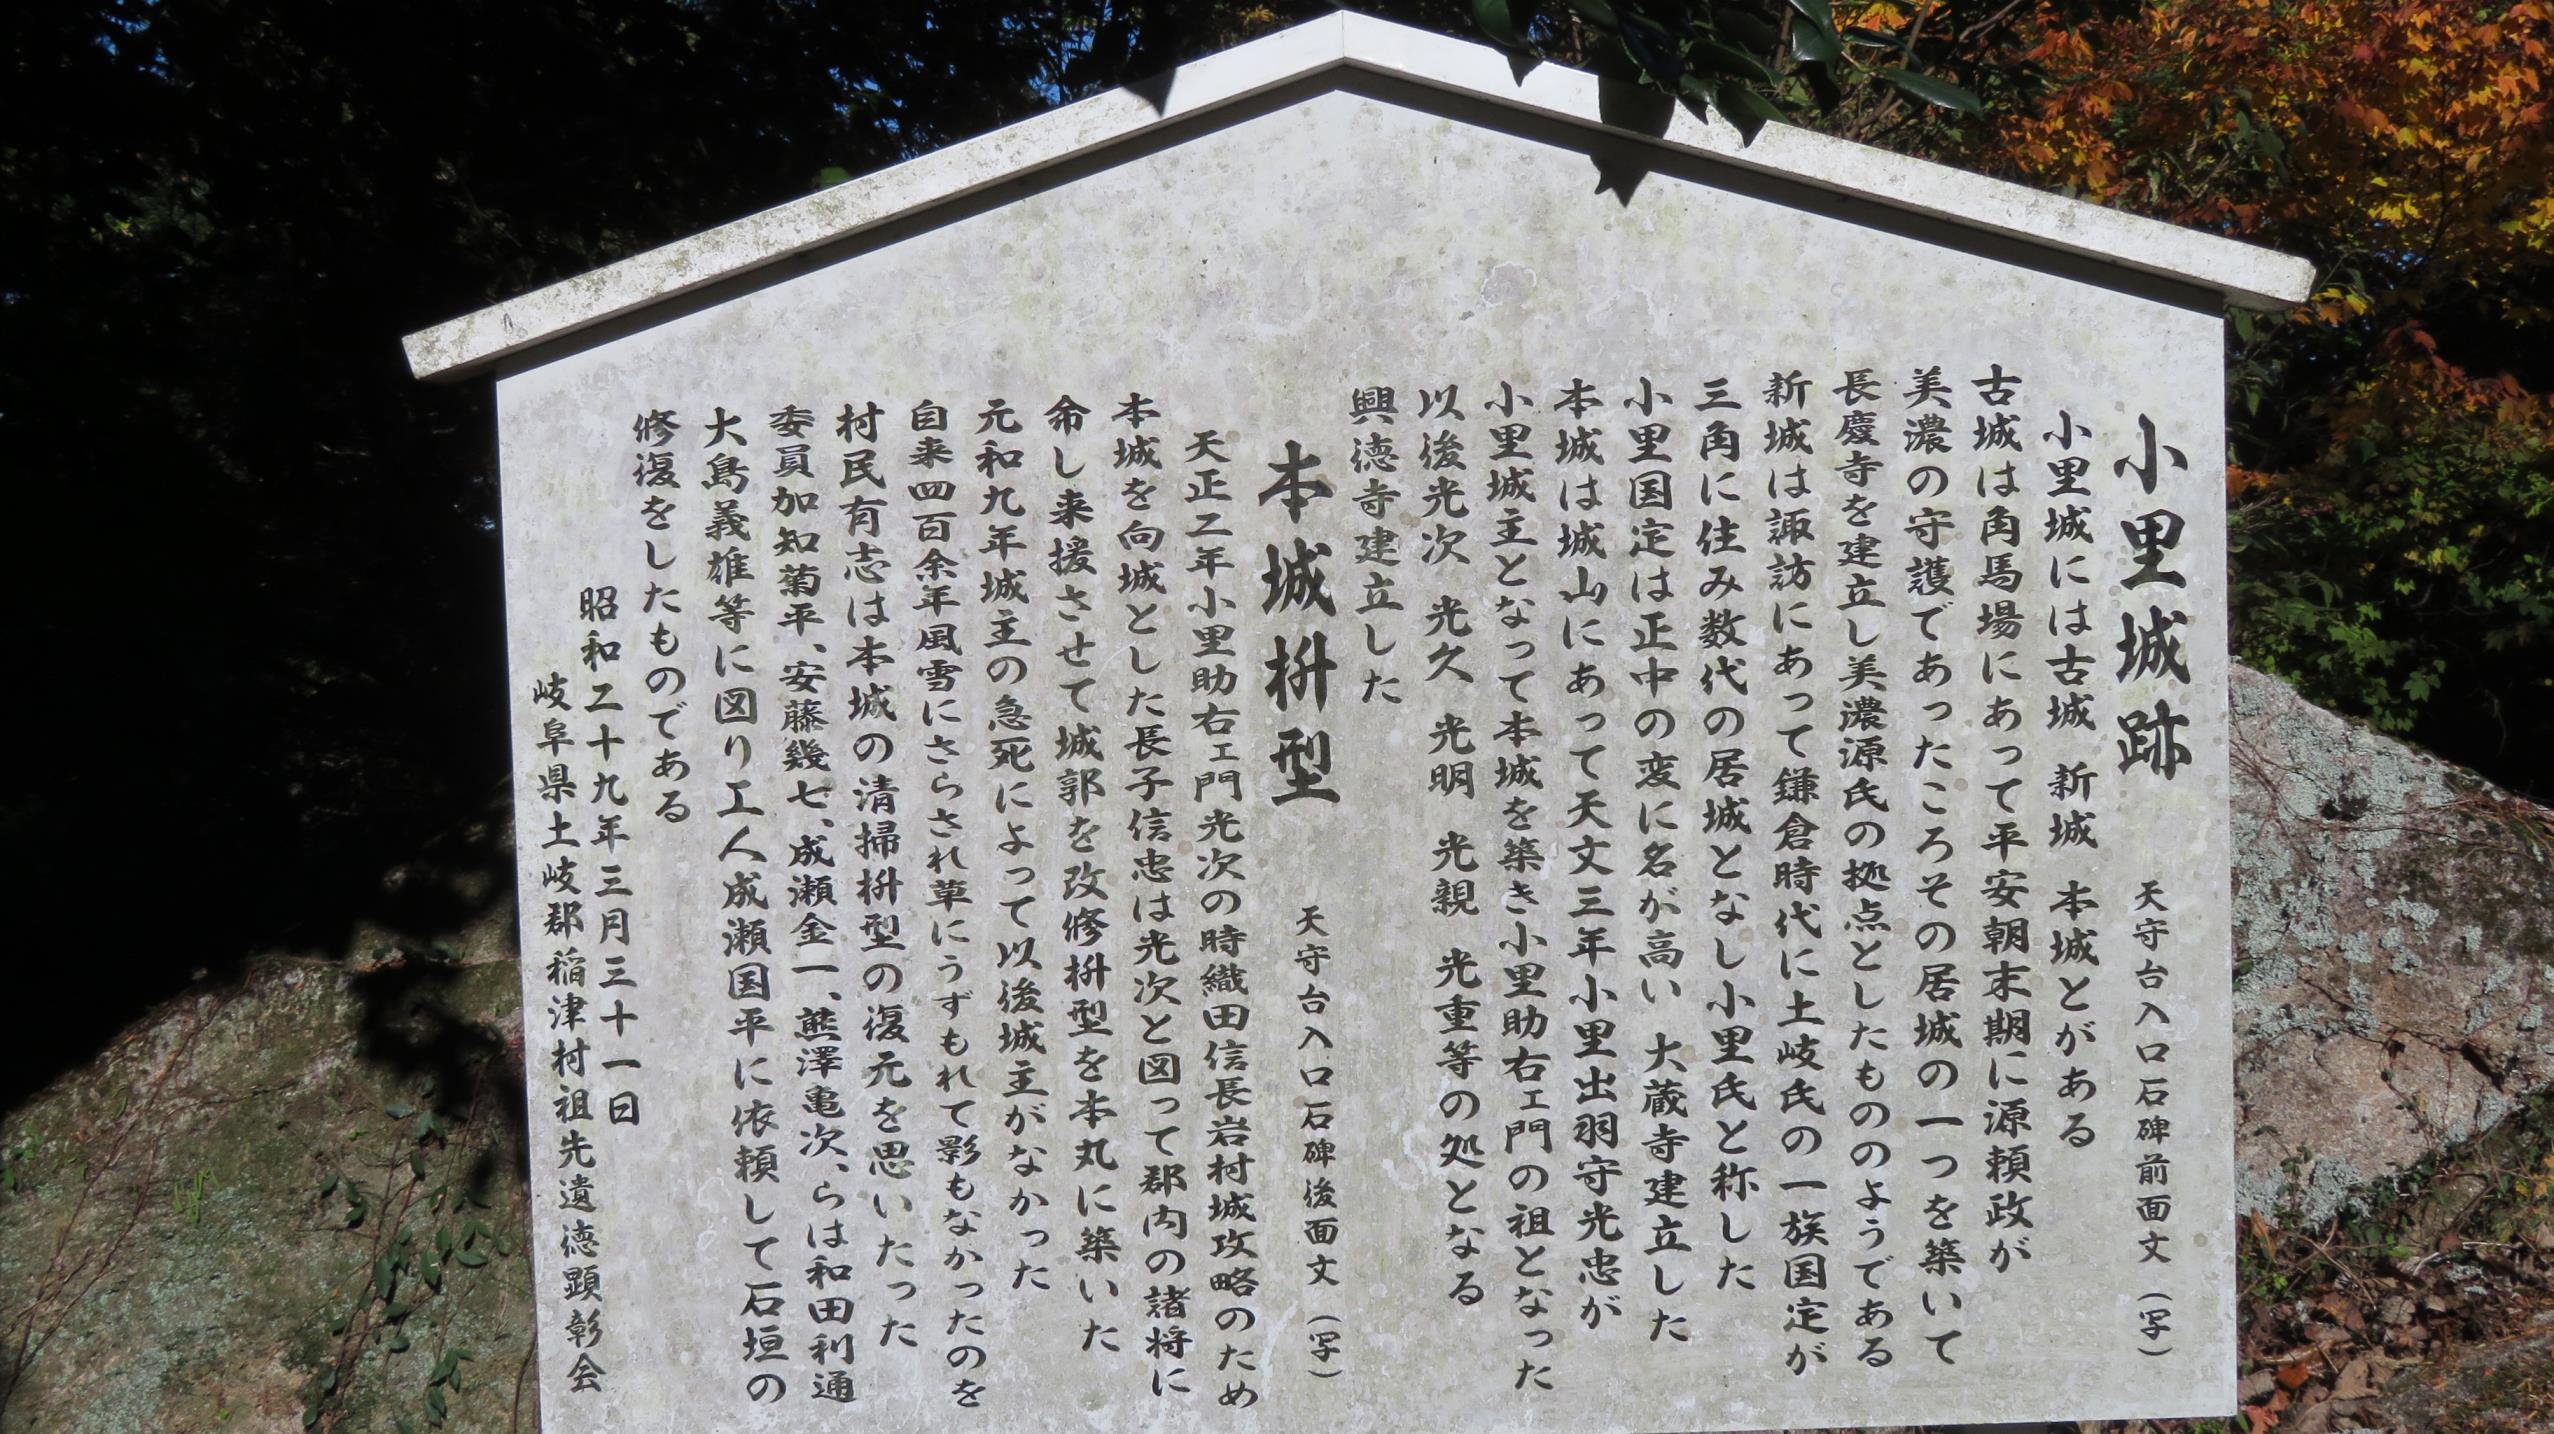 小里城跡 天守台入口石碑前面文（写）
小里城には古城 新城 本城とがある
古城は角馬場にあって平安朝末期に源頼政が
美濃の守護であったころその居城の一つを築いて
長慶寺を建立し美濃源氏の拠点としたもののようである
新城は諏訪にあって鎌倉時代に土岐氏の一族国定が
三角に住み数代の居城となし小里氏と称した
小里国定は正中の変に名が高い 大蔵寺建立した
本城は城山にあって天文三年小里出羽守光忠が
小里城主となって本城を築き小里助右ェ門の祖となった
以後光次 光久 光明 光親 光重等の処となる
興徳寺建立した
本城枡型 天守台入口石碑後面文（写）
天正二年小里助右ェ門光次の時織田信長岩村城攻略のため
本城を向城とした長子信忠は光次と図って郡内の諸将に
命し来援させて城郭を改修枡型を本丸に築いた
元和九年城主の急死によって以後城主がなかった
自来四百余年風雪にさらされ草にうずもれて影もなかったのを
村民有志は本城の清掃枡型の復元を思いたった
委員加知菊平、安藤幾七、成瀬金一、熊澤亀次、らは和田利通
大島義雄等に図り工人成瀬国平に依頼して石垣の
修復をしたものである
昭和二十九年三月三十一日
岐阜県土岐郡稲津村祖先遺徳顕彰会